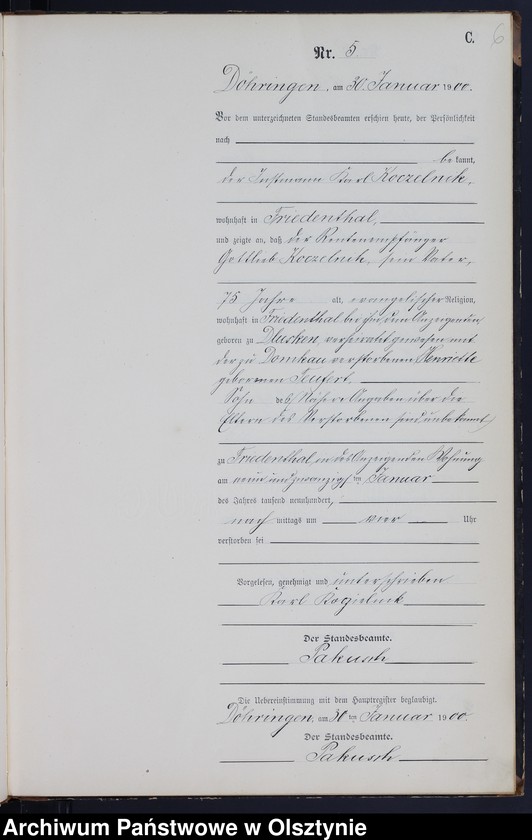 C. 6
Nr. 5
Döhringen, am 30. Januar 1900.
Vor dem unterzeichneten Standesbeamten erschien heute, der Persönlichkeit
nach
be kannt,
der Instmann Karl Koczelnik,
wohnhaft in Friedenthal,
und zeigte an, daß der Rentenempfänger
Gottlieb Koczelnik, sein Vater,
75 Jahre alt, evangelischer Religion,
wohnhaft in Friedenthal bei ihm dem Anzeigenden
geboren zu Dlusken, verheiratet gewesen mit
der zu Domkau verstorbenen Henriette
geborenen Teufert.
Sohn des Nähere Angaben über die
Eltern des Verstorbenen sind unbekannt,
zu Friedenthal, in des Anzeigenden Wohnung
am neun und zwanzigsten Januar
des Jahres tausend neunhundert,
nach mittags um vier Uhr
verstorben sei
Vorgelesen, genehmigt und unterschrieben
Karl Kozielnik
Der Standesbeamte.
Pakusch
Die Uebereinstimmung mit dem Hauptregister beglaubigt.
Döhringen, am 30 ten Januar 1900.
Der Standesbeamte.
Pakusch
Archiwum Państwowe w Olsztynie